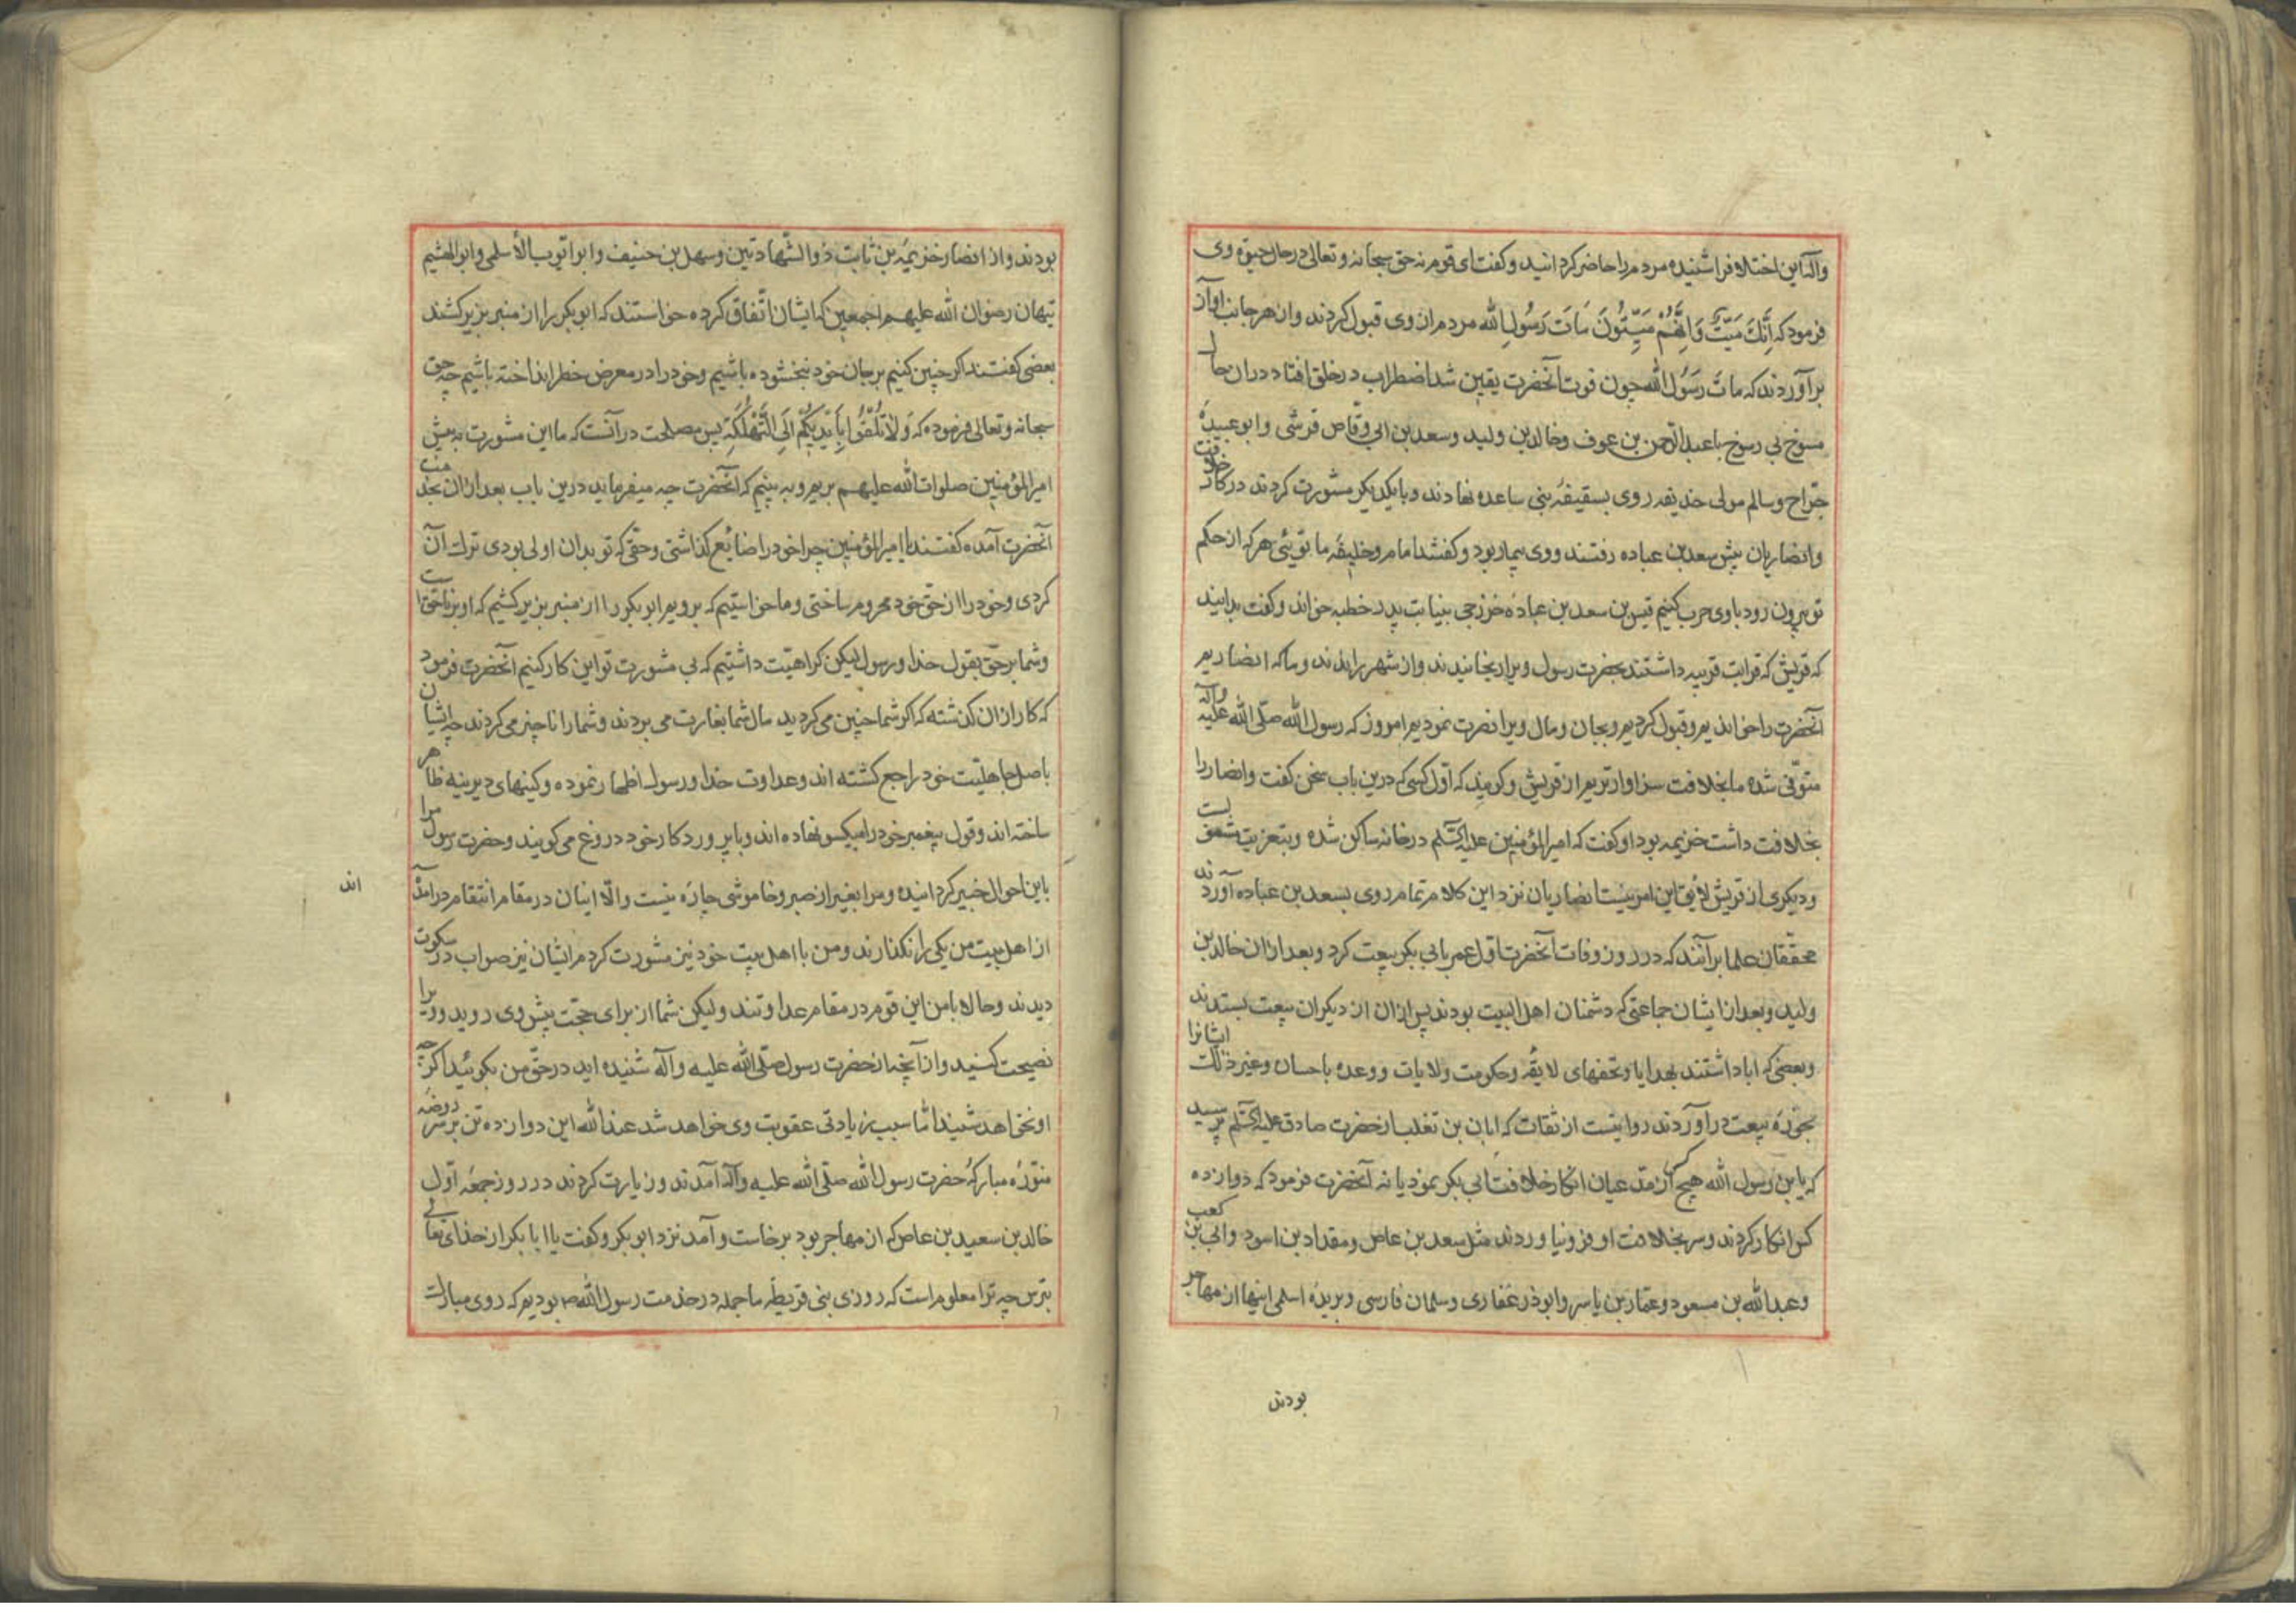 وآله این اختلاف را شنیده مردم را حاضر گردانید و گفت ای قوم نه حق سبحانه و تعالی در حال حیوة وی
فرمود که إِنَّكَ مَيِّتٌ وَإِنَّهُمْ مَيِّتُونَ مَاتَ رَسُولُ الله مردم از وی قبول کردند و از هر جانب آواز
برآوردند که مات رَسُول الله چون فوت آنحضرت یقین شد اضطراب در خلق افتاد در آن حال
منسوخ بی رسوخ با عبد الرّحمن بن عوف و خالد بن ولید و سعد بن ابی وقّاص قرشی و ابو عبیدهٔ
جرّاح و سالم مولی حذیفه روی بسقیفهٔ بنی ساعده نهادند و بایکدیگر مشورت کردند در کار خلافت
و انصاریان پیش سعد بن عباده رفتند و وی بیمار بود و گفتند امام و خلیفهٔ ما توئی هر که از حکم
تو بیرون رود با وی حرب کنیم قیس بن سعد بن عبادهٔ خزرجی بنیابت پدر خطبه خواند و گفت بدانید
که قریش که قرابت قریبه داشتند بحضرت رسول ویرا برنجانیدند و از شهر براندند و ما که انصاریم
آنحضرت را خواندیم و قبول کردیم و بجان و مال ویرا نصرت نمودیم امروز که رسول الله صلّی الله علیه وآله
متوفّی شده ما بخلافت سزاوارتریم از قریش و گویند که اوّل کسی که درین باب سخن گفت و انصار را
بخلافت داشت خزیمه بود او گفت که امیرالمؤمنین علیه السّلم در خانه ساکن شده و بتعزیت مشغولست
و دیگری از قریش لایق این امر نیست انصاریان نزد این کلام تمام روی بسعد بن عباده آوردند
محقّقان علما برآنند که در روز وفات آنحضرت اوّل عمر با ابی بکر بیعت کرد و بعد از آن خالد بن
ولید و بعد از ایشان جماعتی که دشمنان اهل البیت بودند پس از آن از دیگران بیعت بستدند
و بعضی که ابا داشتند بهدایا و تحفهای لایقه و حکومت ولایات و وعده باحسان و غیر ذلک ایشانرا
بحوزهٔ بیعت درآوردند روایتست از ثقات که ابان بن تغلب از حضرت صادق علیه السّلم پرسید
که یا بن رسول الله هیچ کس از مدّعیان انکار خلافت ابی بکر نمود یا نه آنحضرت فرمود که دوازده
کس انکار کردند و سر بخلافت او فرو نیاوردند مثل سعد بن عاص و مقداد بن اسود و ابی بن کعب
و عبد الله بن مسعود و عمّار بن یاسر و ابوذر غفاری و سلمان فارسی و بریدهٔ اسلمی اینها از مهاجر
بودند
بودند و از انصار خزیمهٔ بن ثابت ذو الشّهادتین و سهل بن حنیف و ابو ایّوب الأسلمی و ابوالهثیم
تیهان رضوان الله علیهم اجمعین که ایشان اتّفاق کرده خواستند که ابوبکر را از منبر بزیر کشند
بعضی گفتند اگر چنین کنیم بر جان خود نبخشوده باشیم و خود را در معرض خطر انداخته باشیم چه حق
سبحانه و تعالی فرموده که وَلَا تُلْقُوا بِأَيْدِيكُمْ إِلَى التَّهْلُكَةِ پس مصلحت در آنست که ما این مشورت به پیش
امیرالمؤمنین صلوات الله علیهم بریم و به بینیم که آنحضرت چه میفرماید درین باب بعد از آن بخدمت
آنحضرت آمده گفتند یا امیرالمؤمنین چرا خود را ضایع گذاشتی و حقّی که تو بدان اولی بودی ترک آن
کردی و خود را از حقّ خود محروم ساختی و ما خواستیم که برویم ابوبکر را از منبر بزیر کشیم که او بر ناحق است
و شما بر حقّ بقول خدا و رسول لیکن کراهیّت داشتیم که بی مشورت تو این کار کنیم آنحضرت فرمود
که کار از آن گذشته که اگر شما چنین می کردید مال شما بغارت می بردند و شما را ناچیز می کردند چه ایشان
باصل جاهلیّت خود راجع گشته اند و عداوت خدا و رسول اظهار نموده و کینهای دیرینه ظاهر
ساخته اند و قول پیغمبر خود را میکسو نهاده اند و با پروردگار خود دروغ می گویند و حضرت رسول مرا
باین احوال خبیر گردانیده و مرا بغیر از صبر و خاموشی چاره نیست والّا اینان در مقام انتقام درآمده
اند
از اهل بیت من یکی را نگذارند و من با اهل بیت خود نیز مشورت کردم ایشان نیز صواب در سکوت
دیدند و حالا با من این قوم در مقام عداوتند ولیکن شما از برای حجّت پیش وی روید و ویرا
نصیحت کنید و از آنچه از حضرت رسول صلّی الله علیه وآله شنیده اید در حقّ من بگوئید اگر چه
او نخواهد شنید امّا سبب زیادتی عقوبت وی خواهد شد عند الله این دوازده تن بر سر روضهٔ
منوّرهٔ مبارکهٔ حضرت رسول الله صلّی الله علیه وآله آمدند و زیارت کردند در روز جمعه اوّل
خالد بن سعید بن عاص که از مهاجر بود برخاست و آمد نزد ابوبکر و گفت یا ابا بکر از خدای تعالی
بترس چه ترا معلوم است که روزی بنی قریظه ما جمله در خدمت رسول الله ص بودیم که روی مبارک